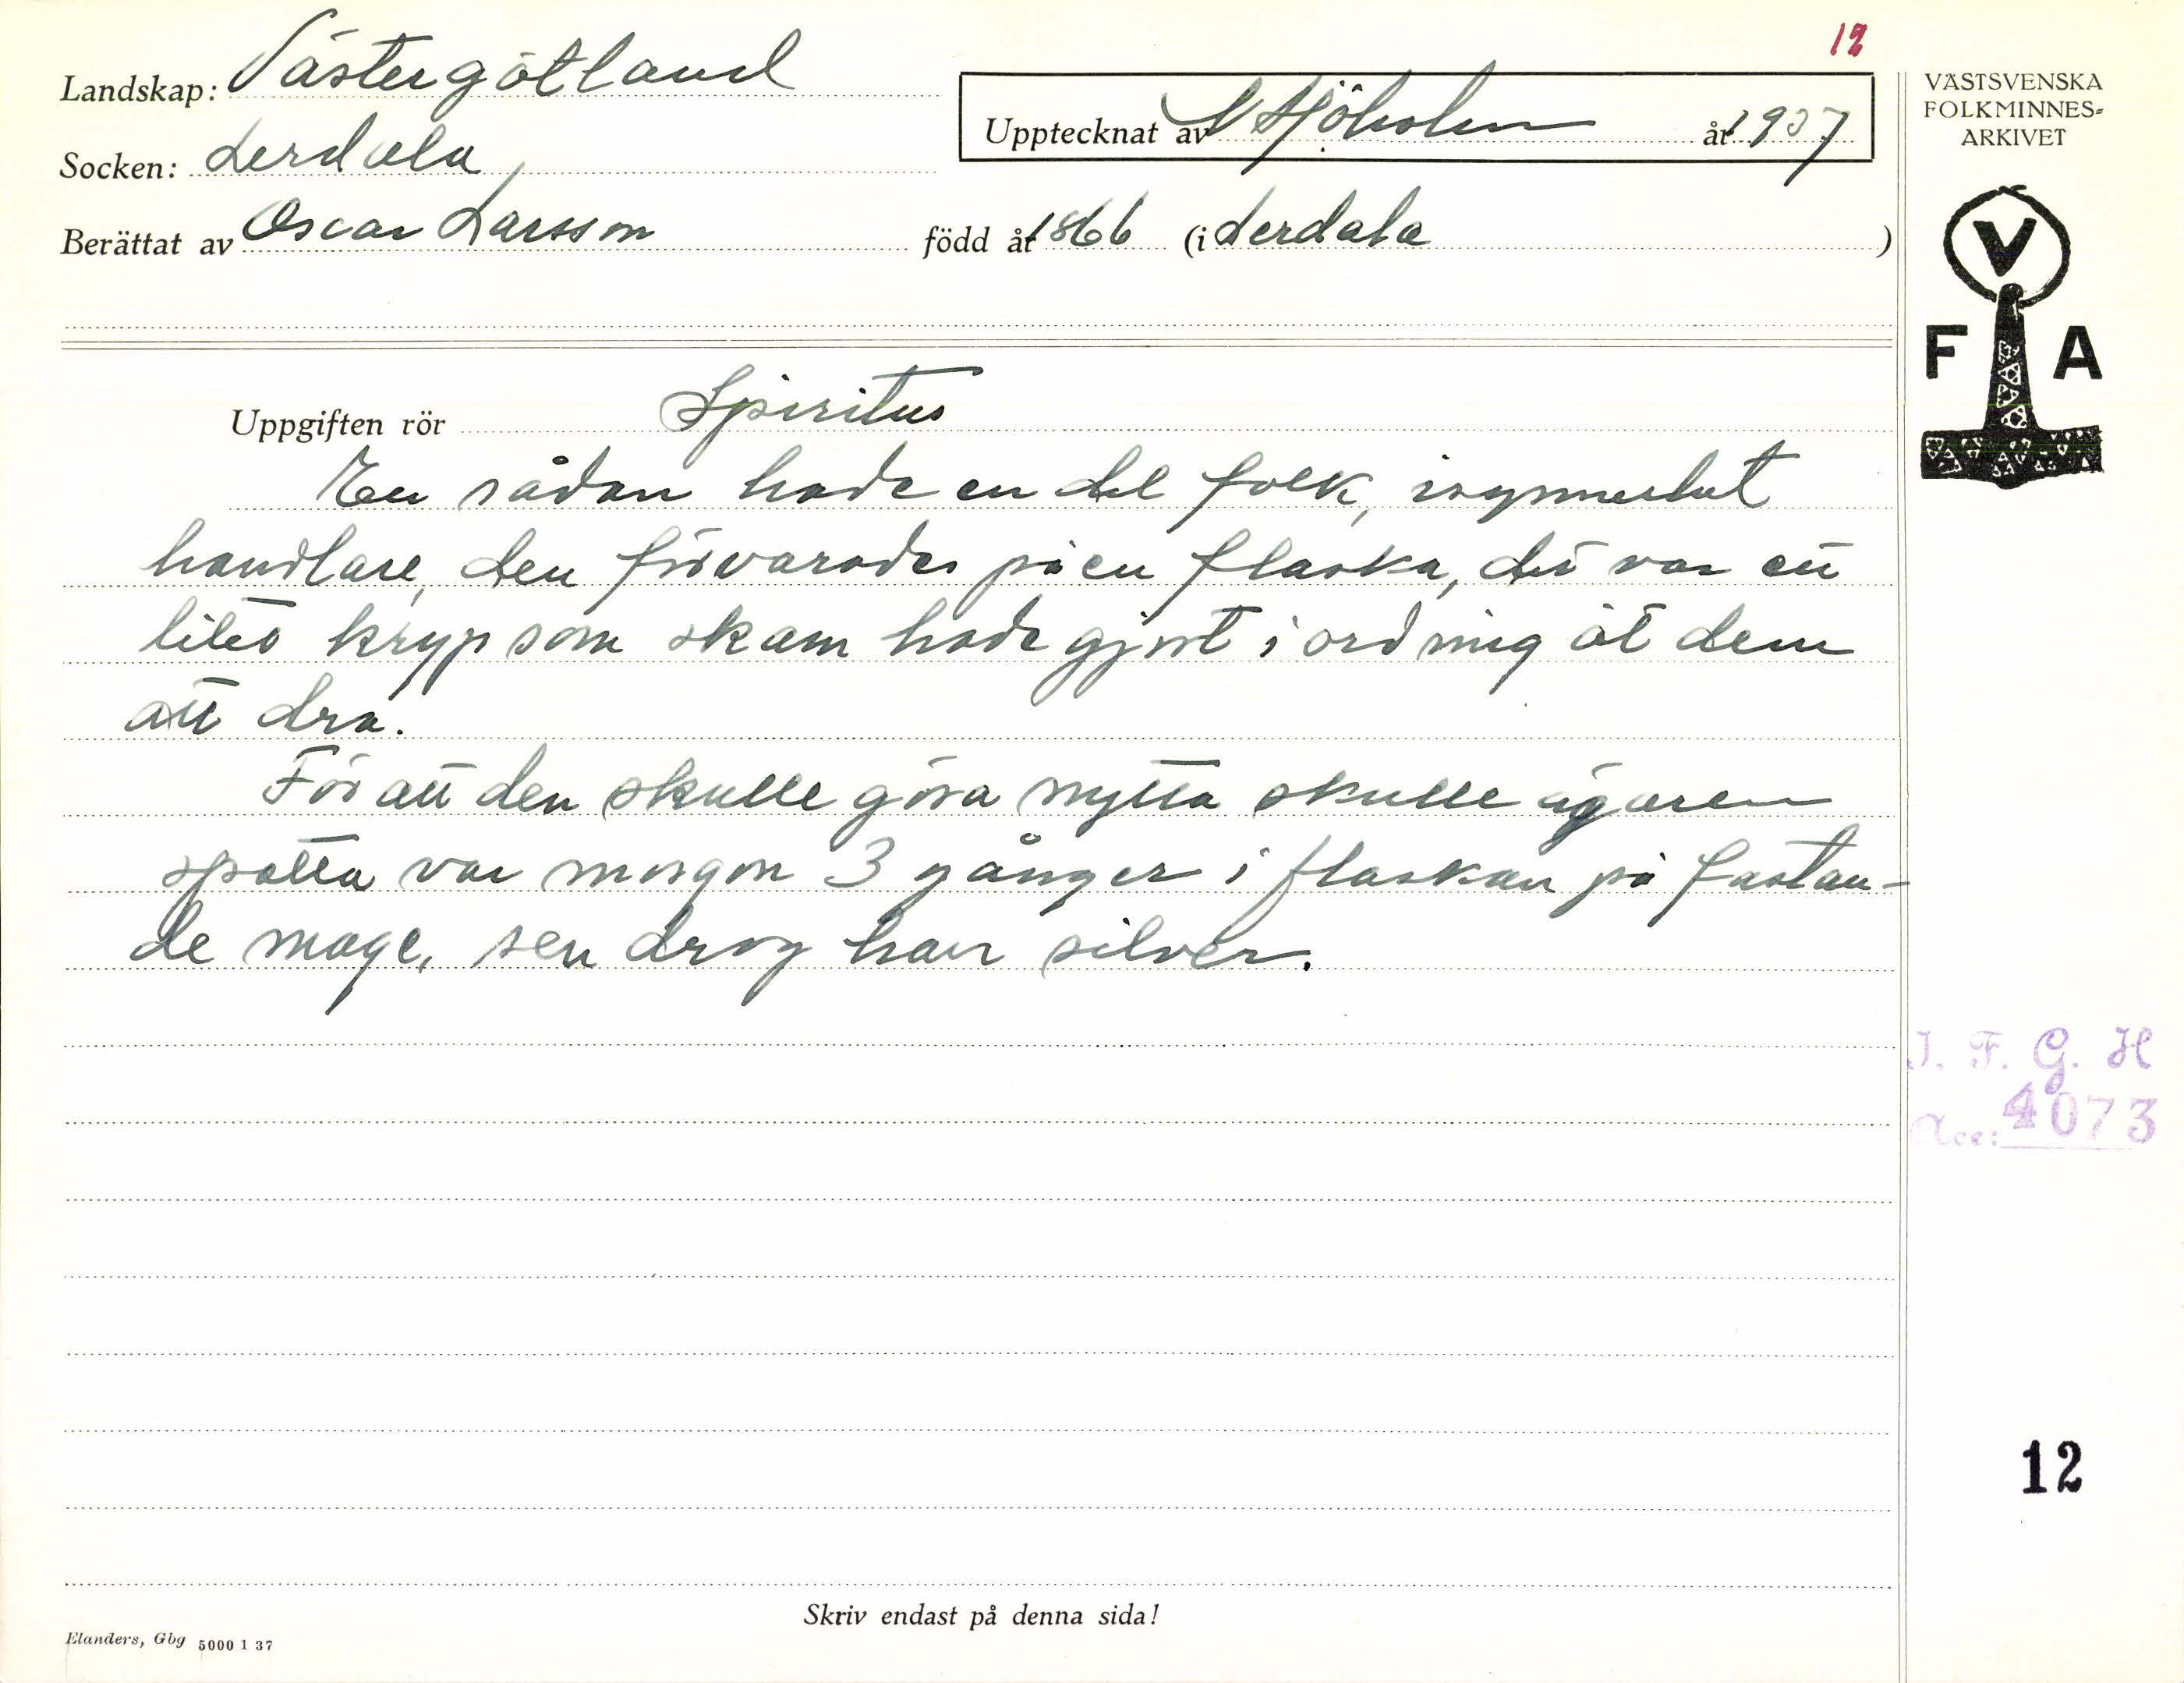 12
Landskap: Västergötland
Socken: Lerdala
Upptecknat av N Sjöholm år 1937
Berättat av Oscar Larsson född år 1866 (i Lerdala )
VÄSTSVENSKA
FOLKMINNES=
ARKIVET
V
F A
Uppgiften rör Spiritus
En sådan hade en del folk, isynnerhet
handlare, den förvarades på en flaska, det var ett
litet kryp som skam hade gjort i ordning åt dem
att dra.
För att den skulle göra nytta skulle ägaren
spotta var morgon 3 gånger i flaskan på fastan-
de mage, sen drog han silver.
I. F. G. H
Acc: 4073
12
Skriv endast på denna sida!
Elanders, Gbg 5000 1 37